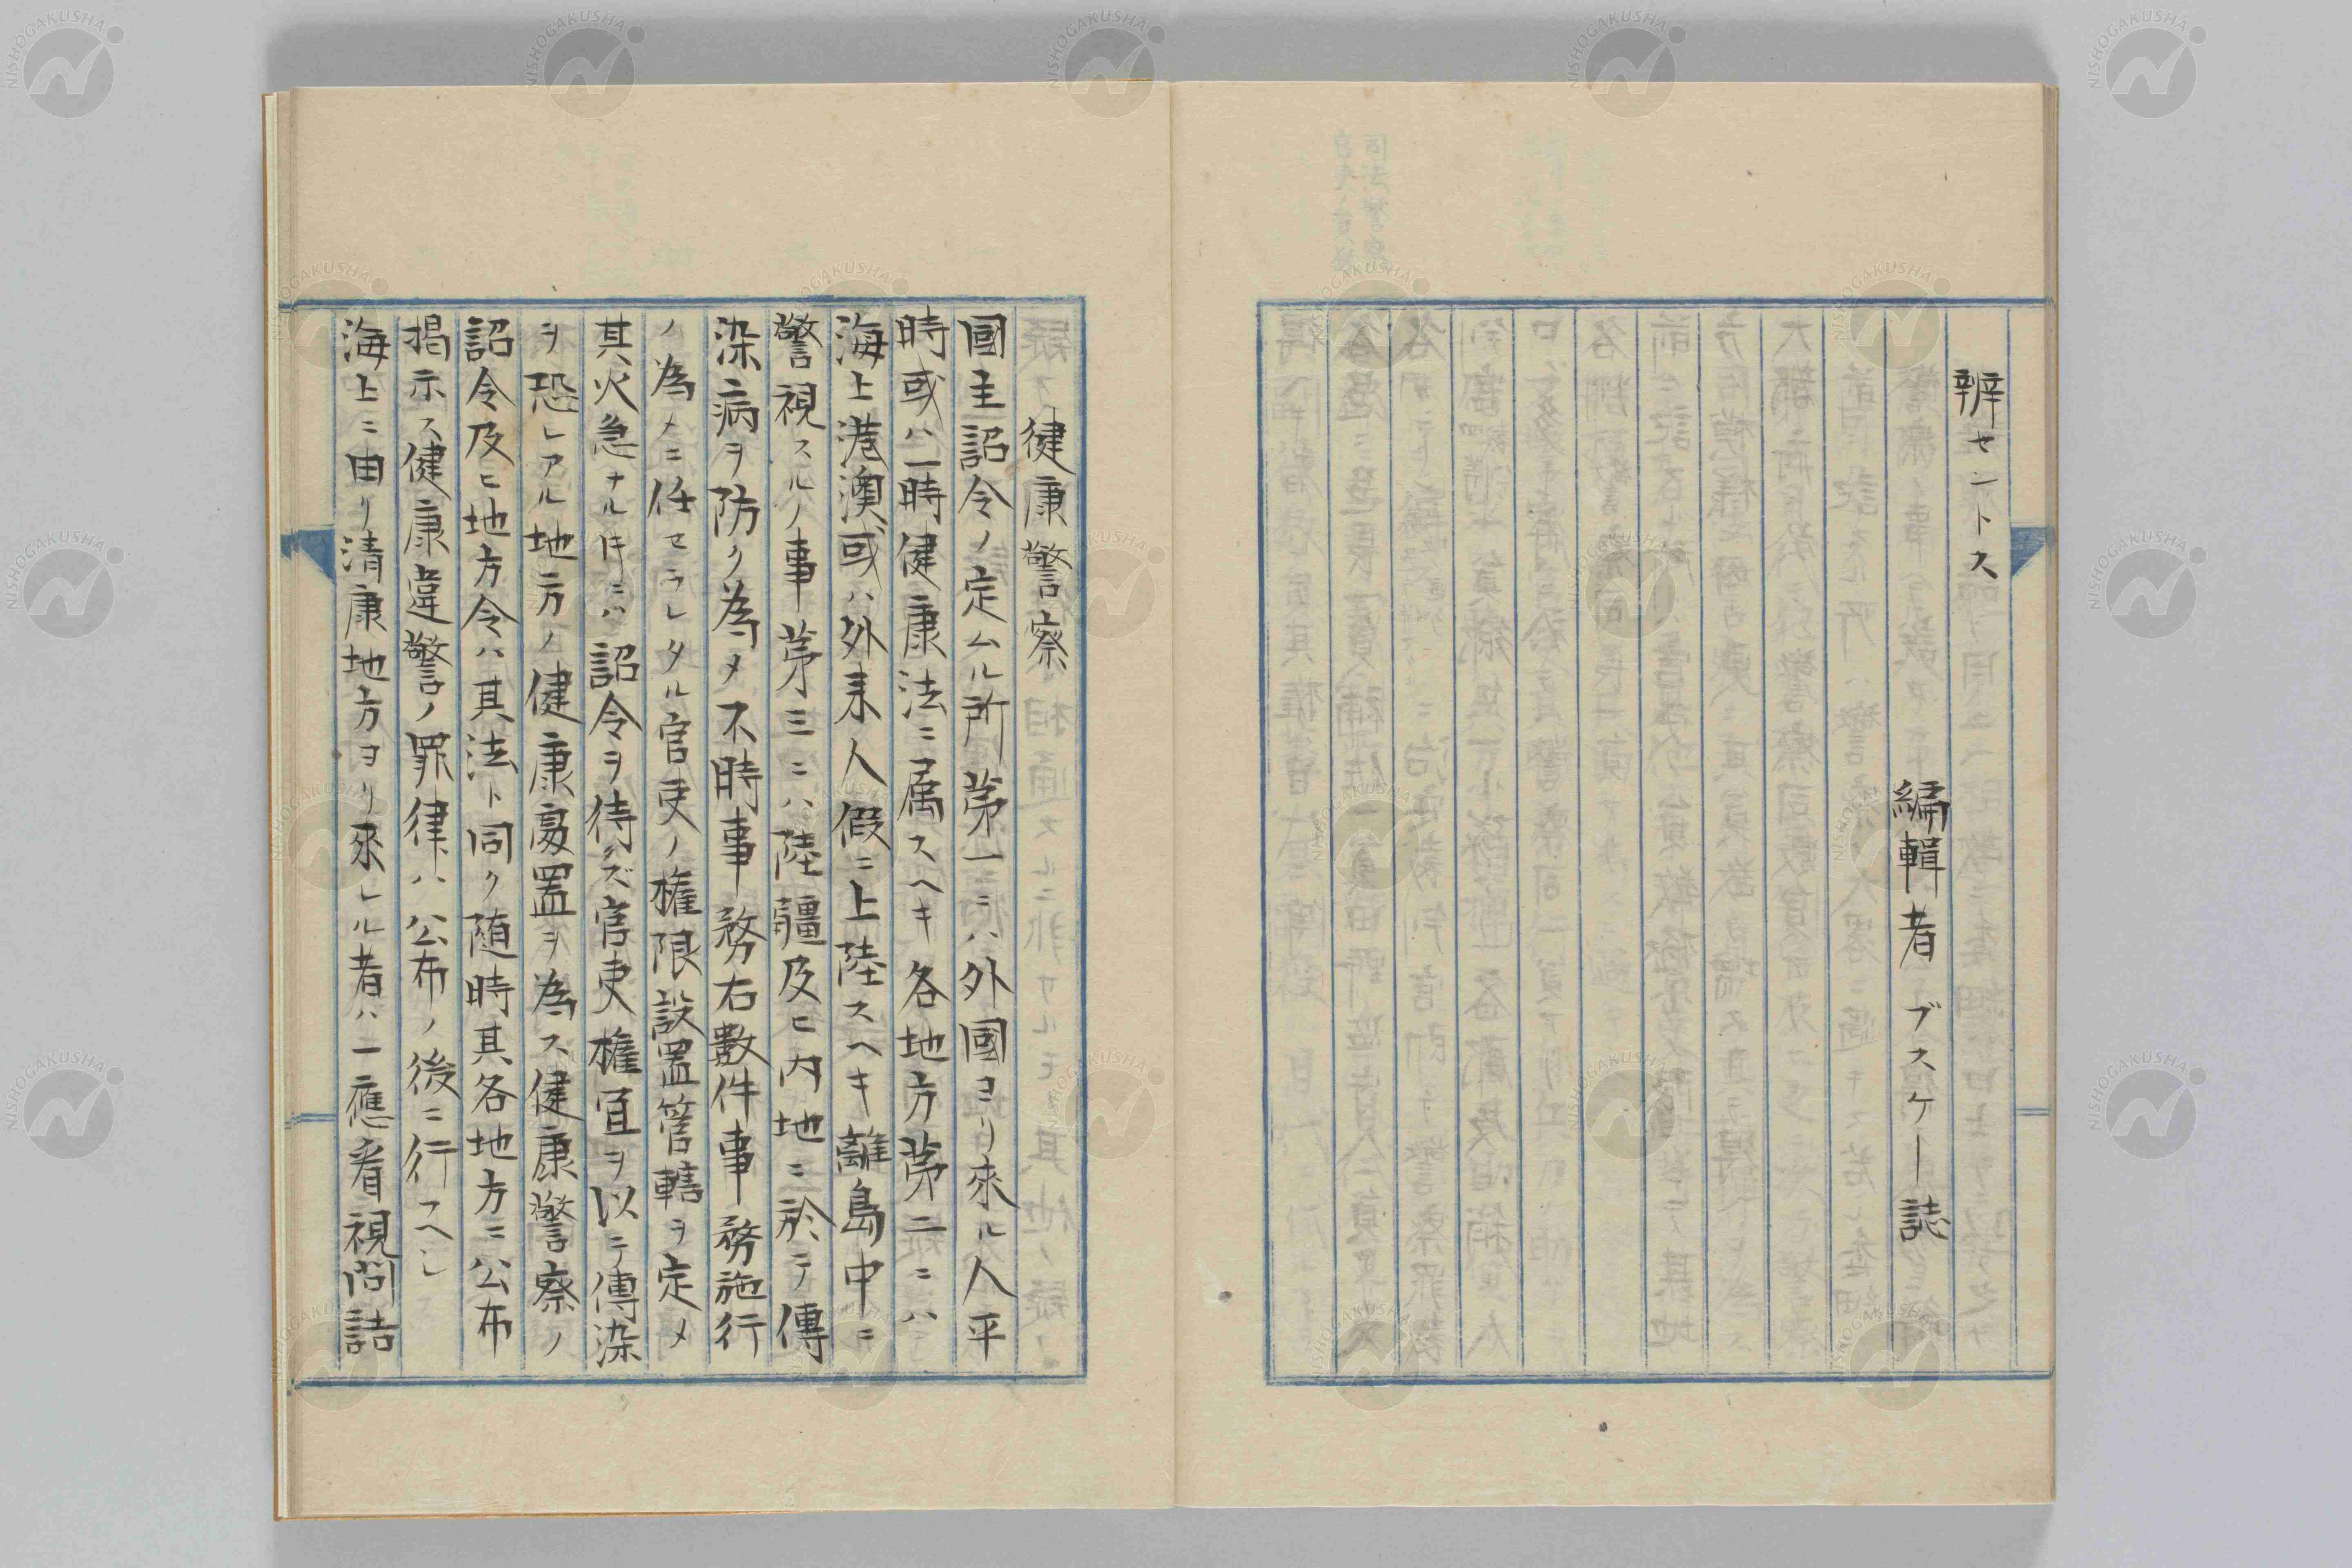 辨セントス
編輯者 ブスケー 誌
健康警察
國主詔令ノ定ムル所茅一ニハ外國ヨリ來ル人平
時或ハ一時健康法ニ属スヘキ各地方茅二ニハ
海上港澳或ハ外耒人假ニ上陸スヘキ離島中ニ
警視スルノ事茅三ニハ陸疆及ヒ内地ニ於テ傳
染病ヲ防ク為メ不時事務右數件事務施行
ノ為メニ任セラレタル官吏ノ権限設置管轄ヲ定メ
其火急ナル片ニハ詔令ヲ待ズ官吏権宜ヲ以テ傳染
ヲ恐レアル地方ノ健康處置ヲ為ス健康警察ノ
詔令及ヒ地方令ハ其法ト同ク随時其各地方ニ公布
掲示ス健康違警ノ罪律ハ公布ノ後ニ行フヘシ
海上ニ由リ清康地方ヨリ來レル者ハ一應看視問詰
NISHOGAKUSHA